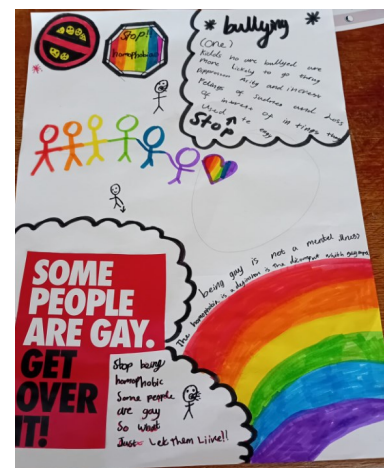 Stop!
homophobia
* bullying *
(one)
Kids who are bullyed are
more likely to go throug
Deppresion Axity and increse
Feelings of Sadness and Loss
of interest of in things they
Used to
Stop
being gay is not a mental illness
The homophobia is a
SOME
PEOPLE
ARE GAY.
GET
OVER
IT!
Stop being
homophobic
Some people
are gay
So What
Just Let them Liive!!